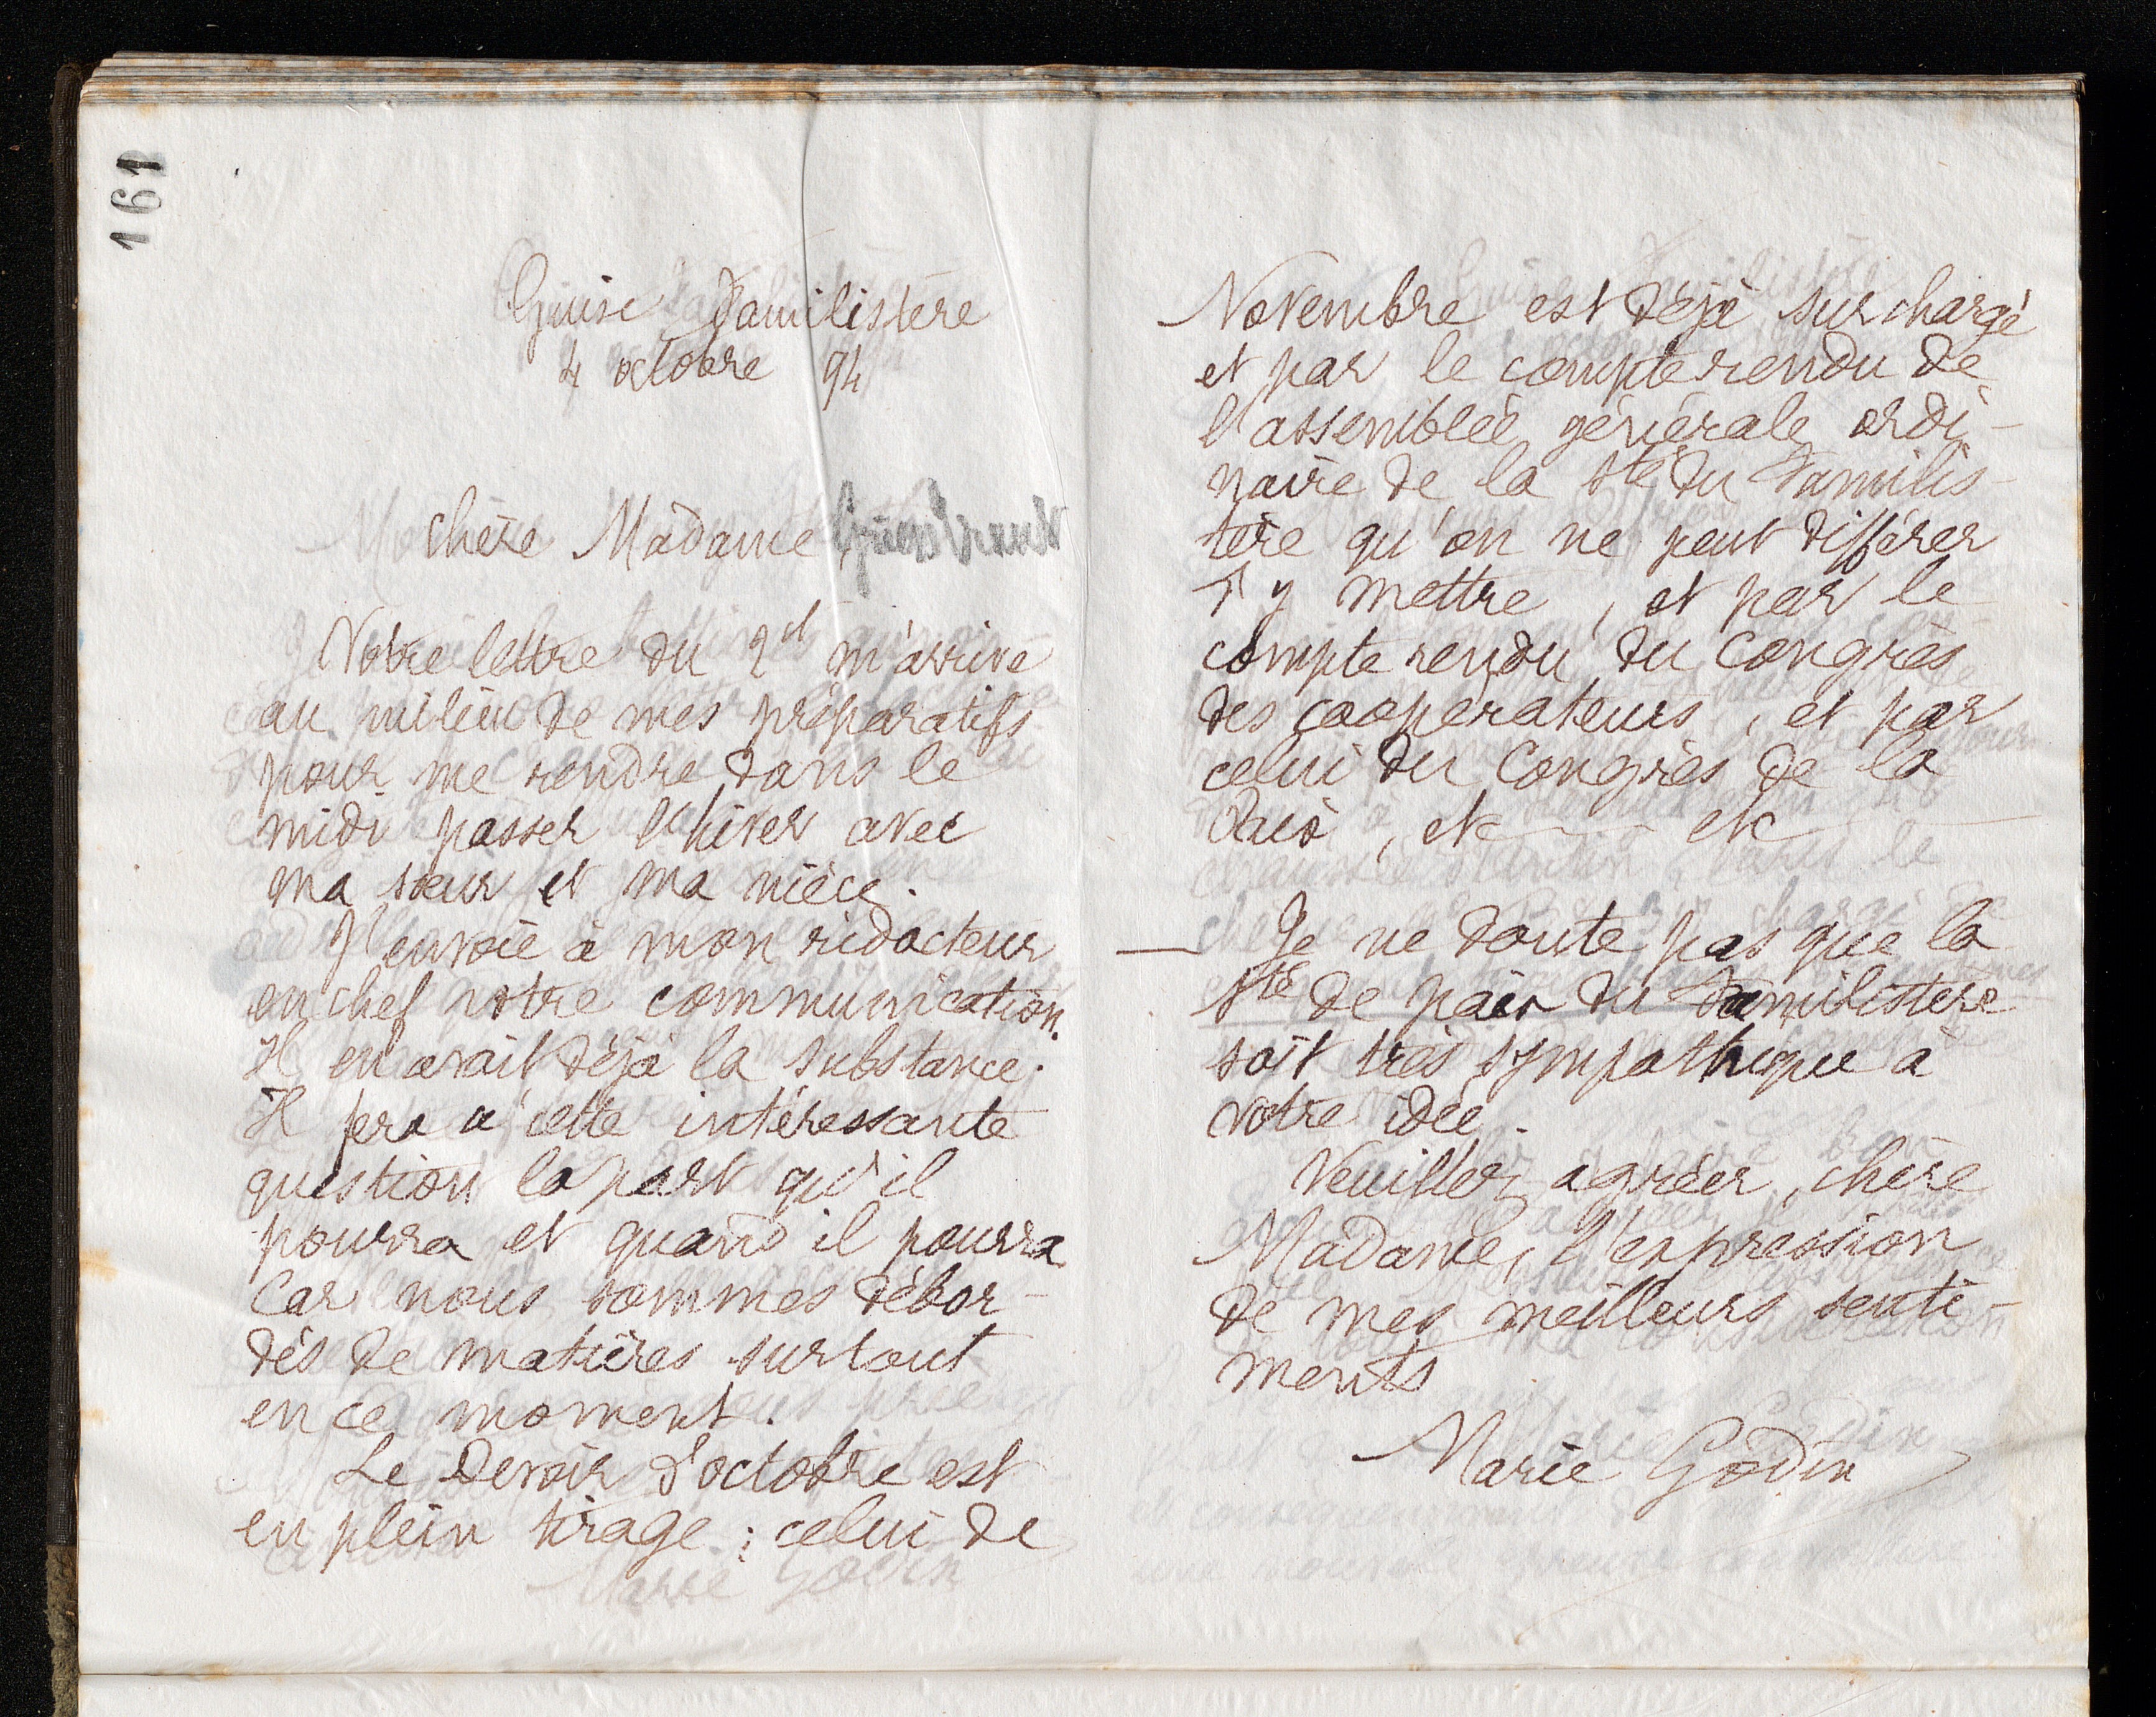 161
Guise Familistère
4 octobre 94
Chère Madame
Votre lettre du 2 ct m'arrive
au milieu de mes préparatifs
pour me rendre dans le
midi passer l'hiver avec
ma sœur et ma nièce.
J'envoie à mon rédacteur
en chef votre communication.
Il en avait déjà la substance.
Il fera à cette intéressante
question la part qu'il
pourra et quand il pourra
Car nous sommes débor-
dés de matières surtout
en ce moment.
Le Devoir d'octobre est
en plein tirage ; celui de
Novembre est déjà surchargé
et par le compte rendu de
l'assemblée générale ordi-
naire de la Sté du Familis-
tère qu'on ne peut différer
d'y mettre, et par le
compte rendu du Congrès
des coopérateurs, et par
celui du Congrès de la
Paix, etc etc
— Je ne doute pas que la
Sté de paix du Familistère
soit très sympathique à
votre idée.
Veuillez agréer, chère
Madame, l'expression
de mes meilleurs senti-
ments
Marie Godin